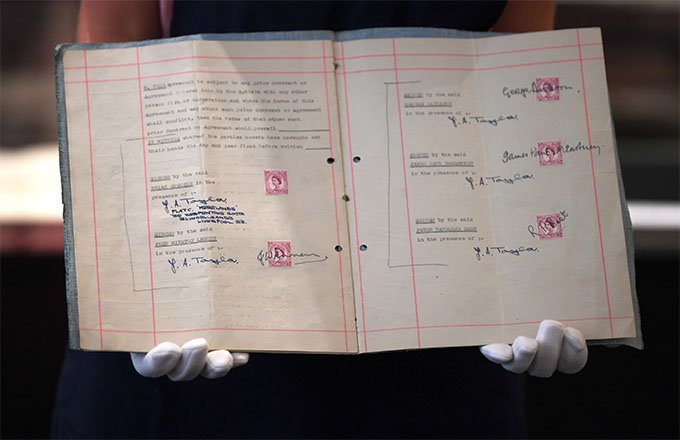 8. THIS Agreement is subject to any prior Contract or
Agreement entered into by the Artists with any other
person firm or corporation and where the terms of this
Agreement and any other such prior Contract or Agreement
shall conflict, then the terms of that other such
prior Contract or Agreement shall prevail
IN WITNESS whereof the parties hereto have hereunto set
their hands the day and year first before written
SIGNED by the said
BRIAN EPSTEIN in the
presence of :-
J. A. Taylor
LIVERPOOL 23.
SIGNED by the said
JOHN WINSTON LENNON
in the presence of :-
J. A. Taylor
J W Lennon
SIGNED by the said
GEORGE HARRISON
in the presence of :-
George Harrison
J. A. Taylor
SIGNED by the said
JAMES PAUL McCARTNEY
in the presence of :-
James Paul McCartney
J. A. Taylor
SIGNED by the said
PETER RANDOLPH BEST
in the presence of :-
J. A. Taylor